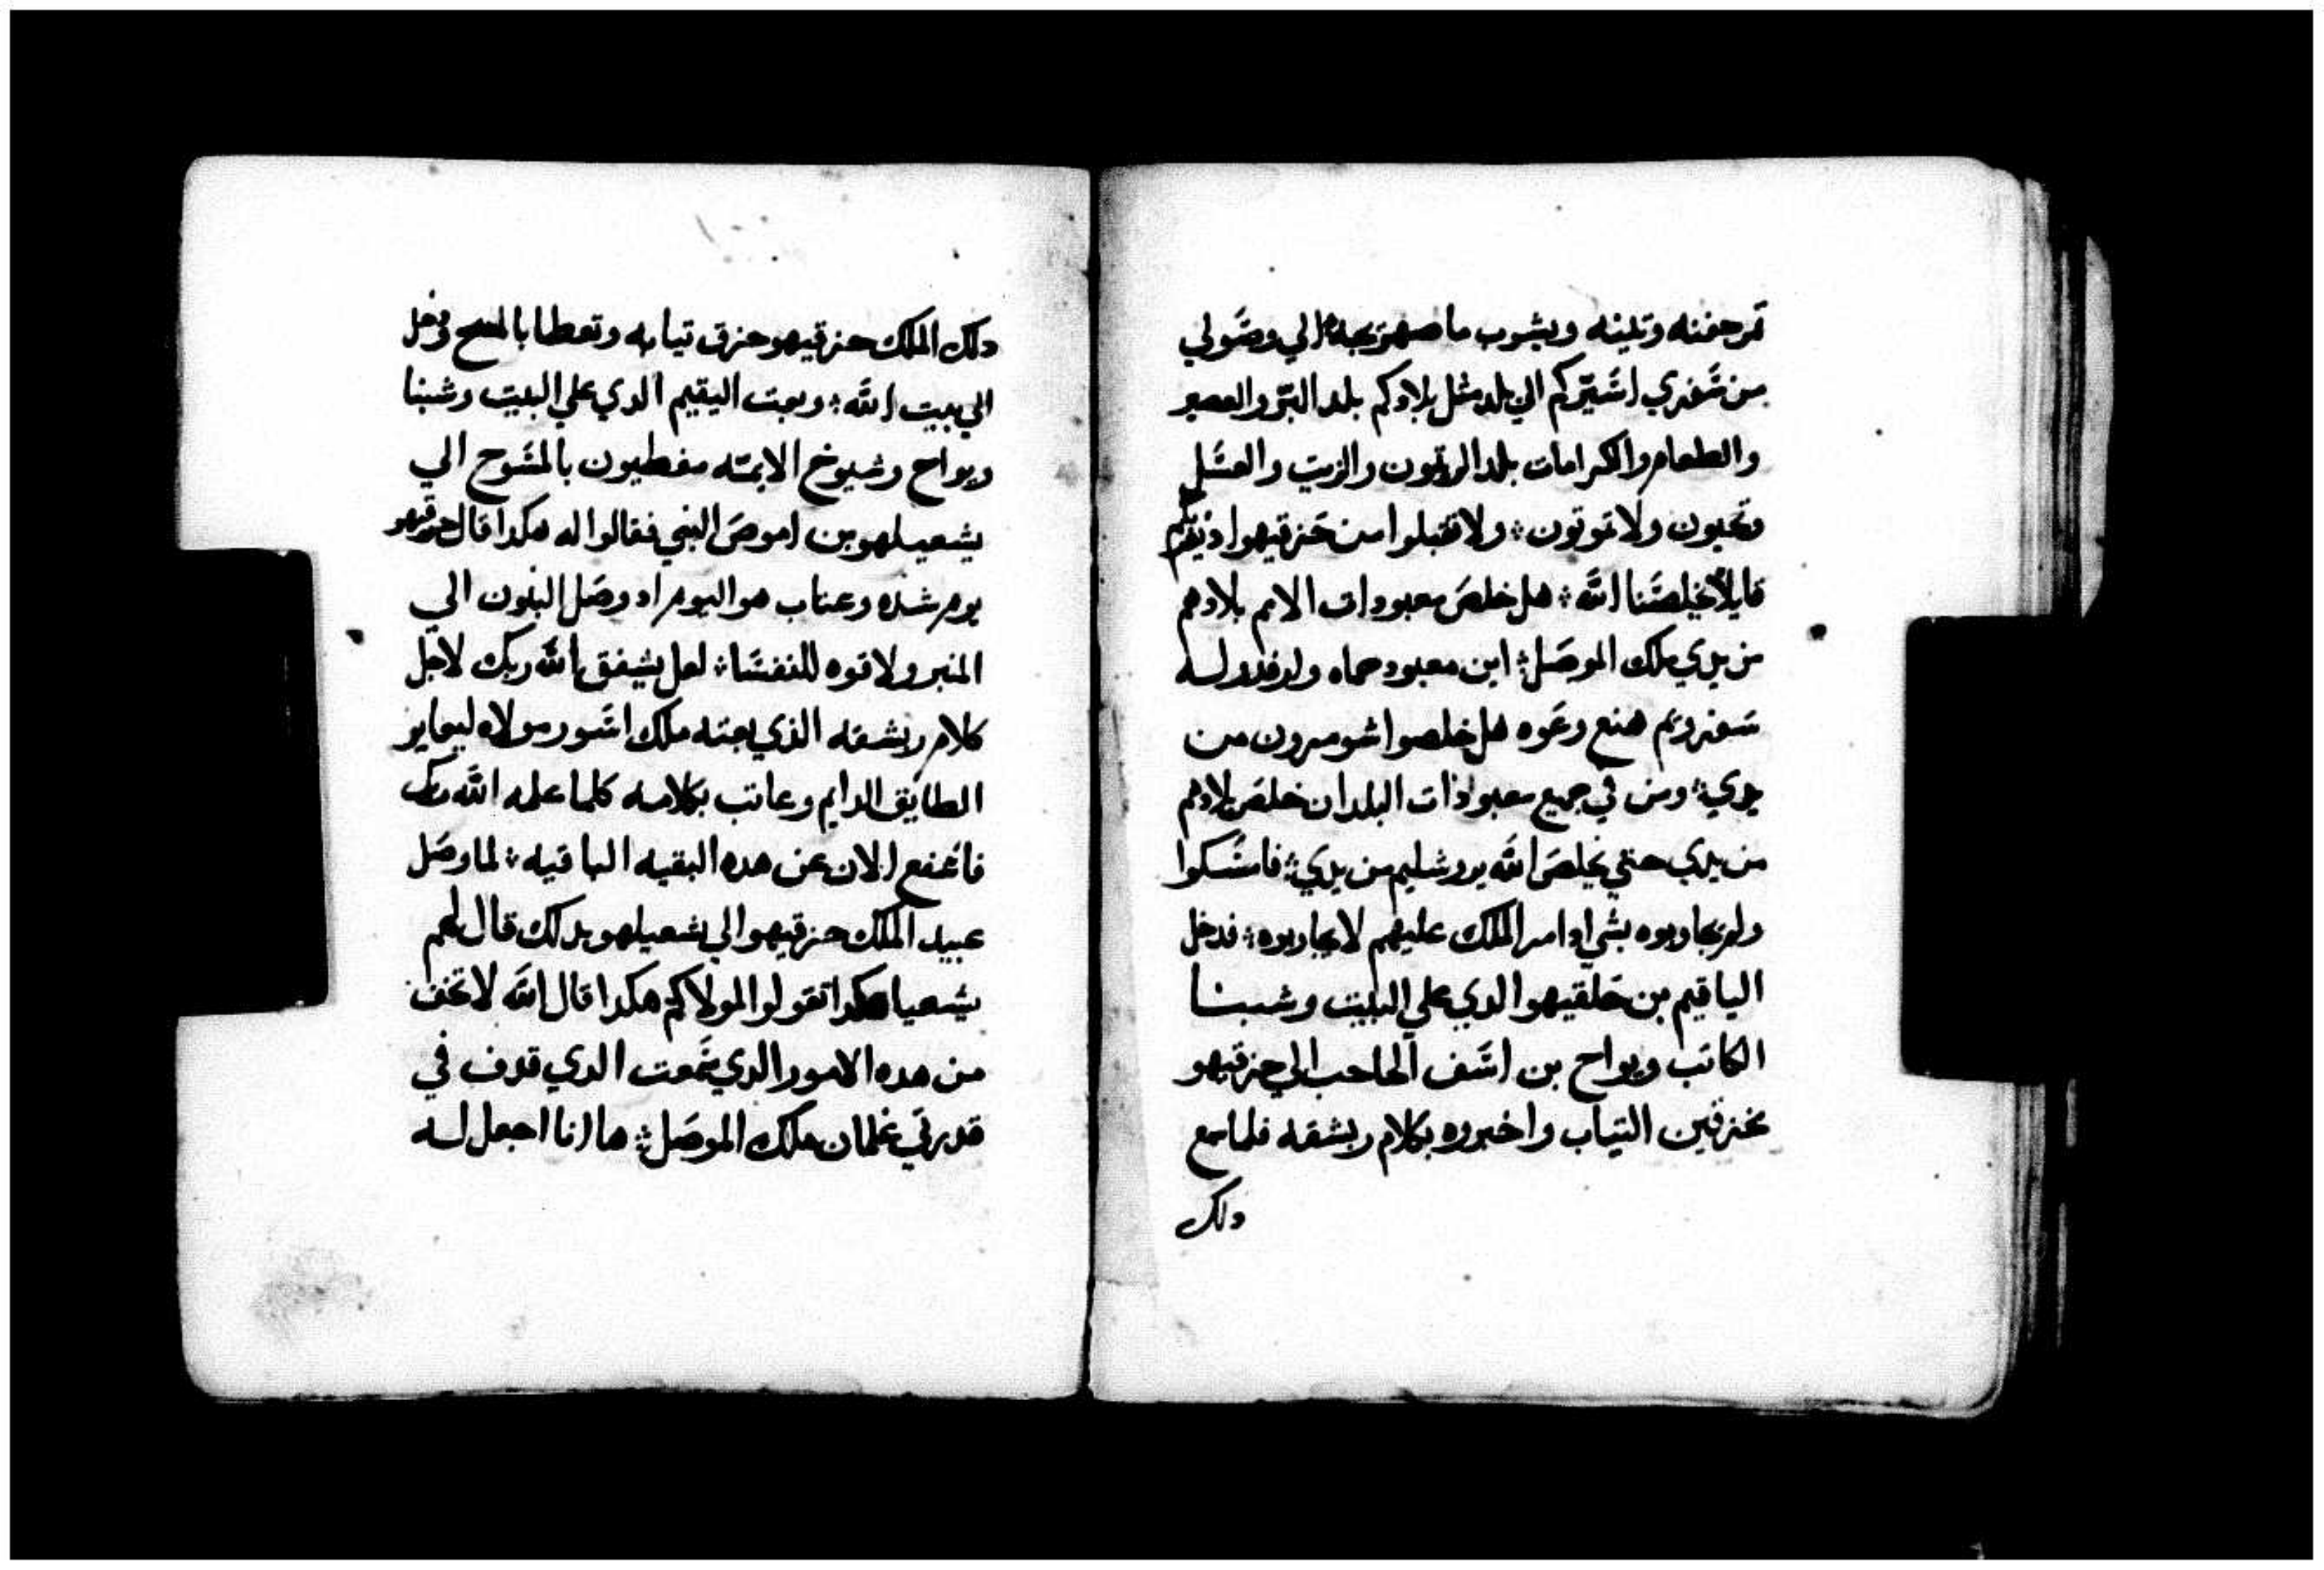 تمر جفنه وتلينه ويشوب ما صهريجه الي وصولي
من سفري اسيركم الي بلد مثل بلادكم بلد البر والعصير
والطعام والكرامات بلد الزيتون والزيت والعسل
وتحيون ولا تموتون ولا تقبلوا من حزقيهو اذ يغركم
قايلا يخلصنا الله هل خلص معبودات الامم بلادهم
من يدي ملك الموصل اين معبود حماه وارفد وله
سفرويم هنع وعوه هل خلصوا شومرون من
يدي ومن في جميع معبودات البلدان خلص بلادهم
من يدي حتي يخلص الله يروشليم من يدي فامسكوا
ولم يجاوبوه بشي اد امر الملك عليهم لا يجاوبوه فدخل
الياقيم بن حلقيهو الدي علي البيت وشبنا
الكاتب ويواح بن اسف الحاجب الي حزقيهو
مخرقين التياب واخبروه بكلام ربشقه فلما سمع
دلك
دلك الملك حزقيهو خرق تيابه وتغطا بالمسح ودخل
الي بيت الله وبعت اليقيم الدي علي البيت وشبنا
ويواح وشيوخ الايمته مغطيون بالمسوح الي
يشعيلهو بن اموص النبي فقالوا له هكدا قال حزقيهو
يوم شده وعتاب هو اليوم اد وصل البنون الي
المنبر ولا قوه للنفسا لعل يشفق الله ربك لاجل
كلام ربشقه الذي بعته ملك اسور مولاه ليعاير
الطايق الدايم وعاتب بكلامه كلما علمه الله ربك
فاشفع الان عن هده البقيه الباقيه لما وصل
عبيد الملك حزقيهو الي يشعيلهو بدلك قال لهم
يشعيا هكدا تقولوا لمولاكم هكدا قال الله لا تخف
من هده الامور الدي سمعت الدي قدف في
قدرتي غلمان ملك الموصل ها انا اجعل له